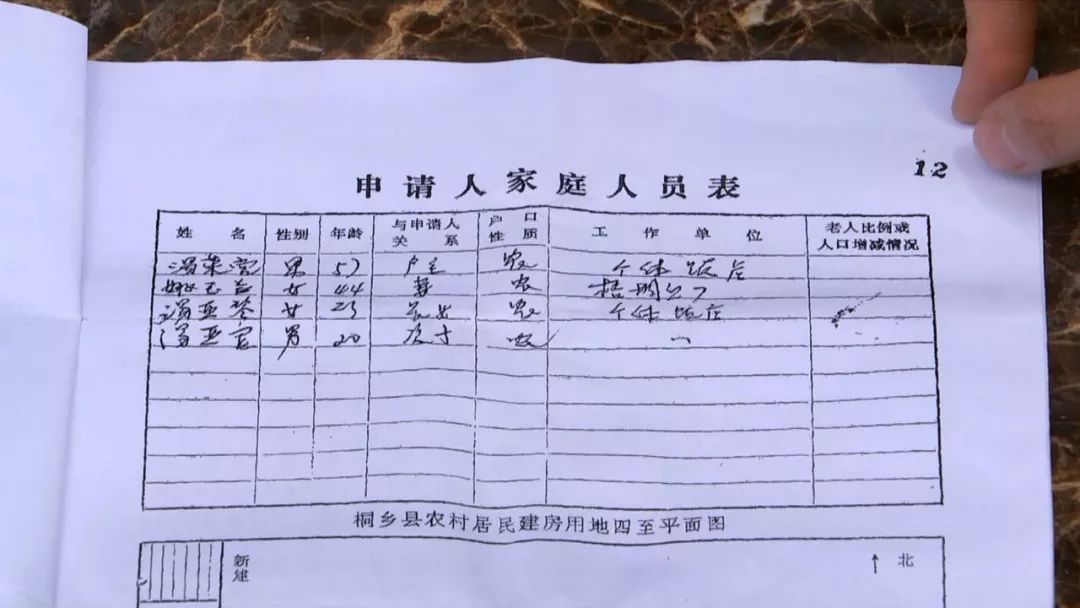 12
申请人家庭人员表
姓名 性别 年龄 与申请人关系 户口性质 工作单位 老人比例或人口增减情况
男 57 户主 农 个体饭店
女 44 妻 农
亚 女 23 长女 农 个体饭店
亚 男 20 农 〃
桐乡县农村居民建房用地四至平面图
新建
↑北